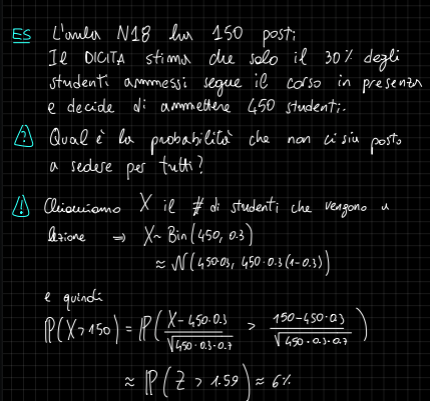 ES L'aula N18 ha 150 posti
Il DICITA stima che solo il 30% degli
studenti ammessi segue il corso in presenza
e decide di ammettere 450 studenti.
? Qual è la probabilità che non ci sia posto
a sedere per tutti?
! Chiamiamo X il # di studenti che vengono a
lezione ⇒ X ~ Bin(450, 0.3)
≈ N(450·0.3, 450·0.3(1-0.3))
e quindi
P(X>150) = P( (X-450·0.3)/√(450·0.3·0.7) > (150-450·0.3)/√(450·0.3·0.7) )
≈ P(Z > 1.59) ≈ 6%